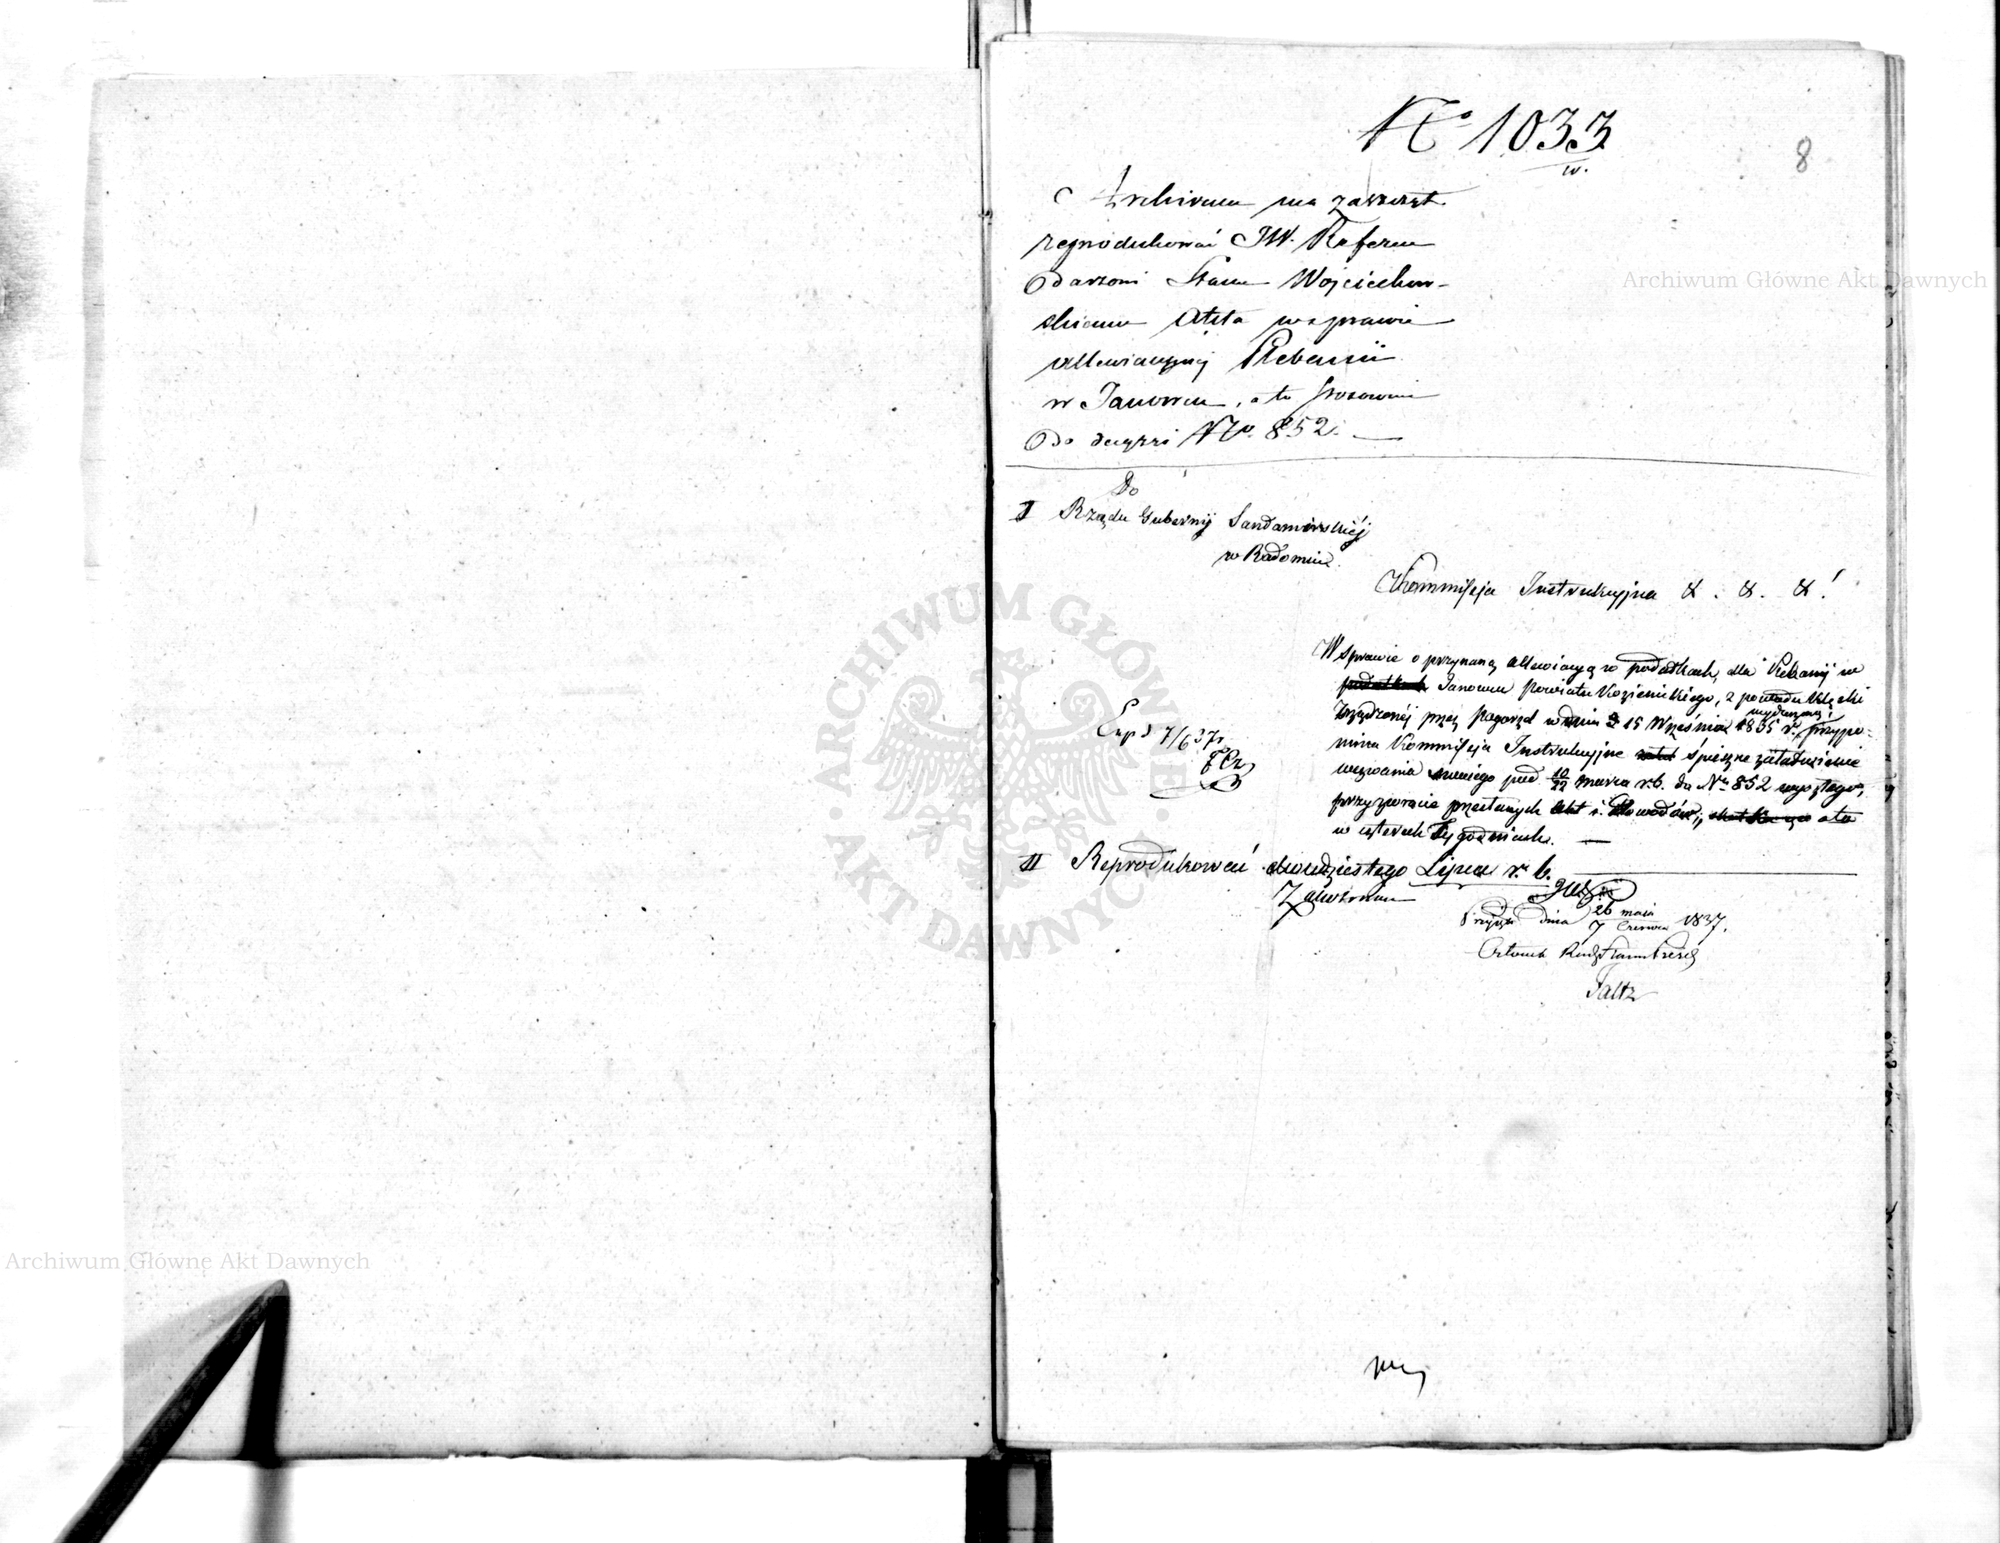 No 1033
8
Archivum ma zaszczyt
reprodukować JW. Refere
darzowi Stanu Wojciechow-
skiemu Akta w sprawie
allewiacyjnej Plebanii
w Janowcu, a to stosownie
do decyzji No. 852.
Do
I Rządu Gubernij Sandomirskiéj
w Radomiu.
Kommissja Instrukcyjna & . & . & !
W sprawie o przyznaną allewiacyą w podatkach, dla Plebanij w
Janowcu Powiatu Kozienickiego, z powodu klęski
wydarzonéj
zrządzonéj przez Pogorzel w dniu 15 Września 1835 r. przypo-
mina Kommissja Instrukcyjna śpieszne załatwienie
wezwania swoiego pod 10/22 marca r.b. do Nru 852 wysłanego,
przy zwrocie przesłanych Akt i Dowodów, a to
w czterech Tygodniach.
Exp d 7/6 37 r
II Reprodukować dwudziestego Lipca r. b.
Przyjęto dnia 26 maja / 7 Czerwca 1837.
Członek Rady Stanu Prezes
Faltz
ARCHIWUM GŁÓWNE AKT DAWNYCH
Archiwum Główne Akt Dawnych
Archiwum Główne Akt Dawnych